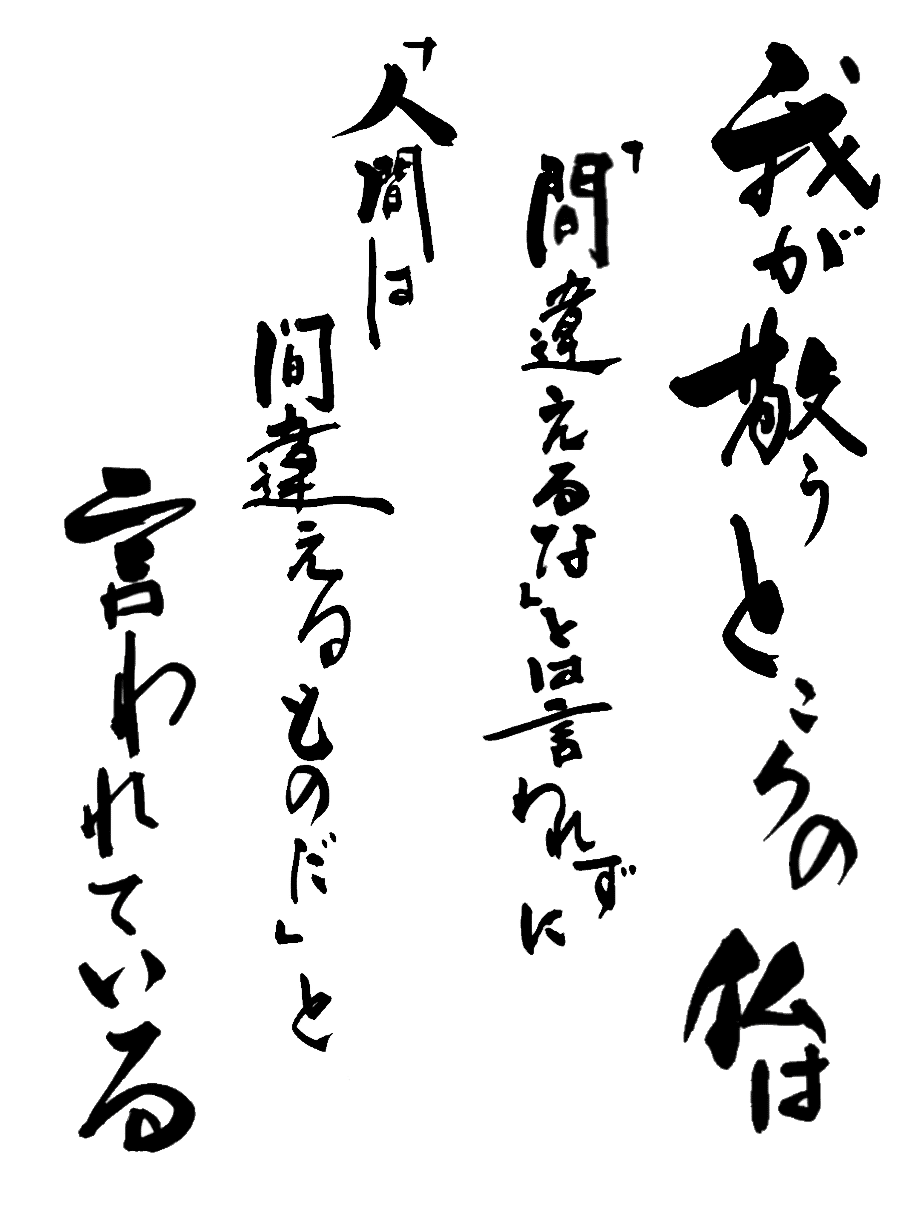 我が散うところの私は
「間違えるな」とは言われずに
「人間は
間違えるものだ」と
言われている